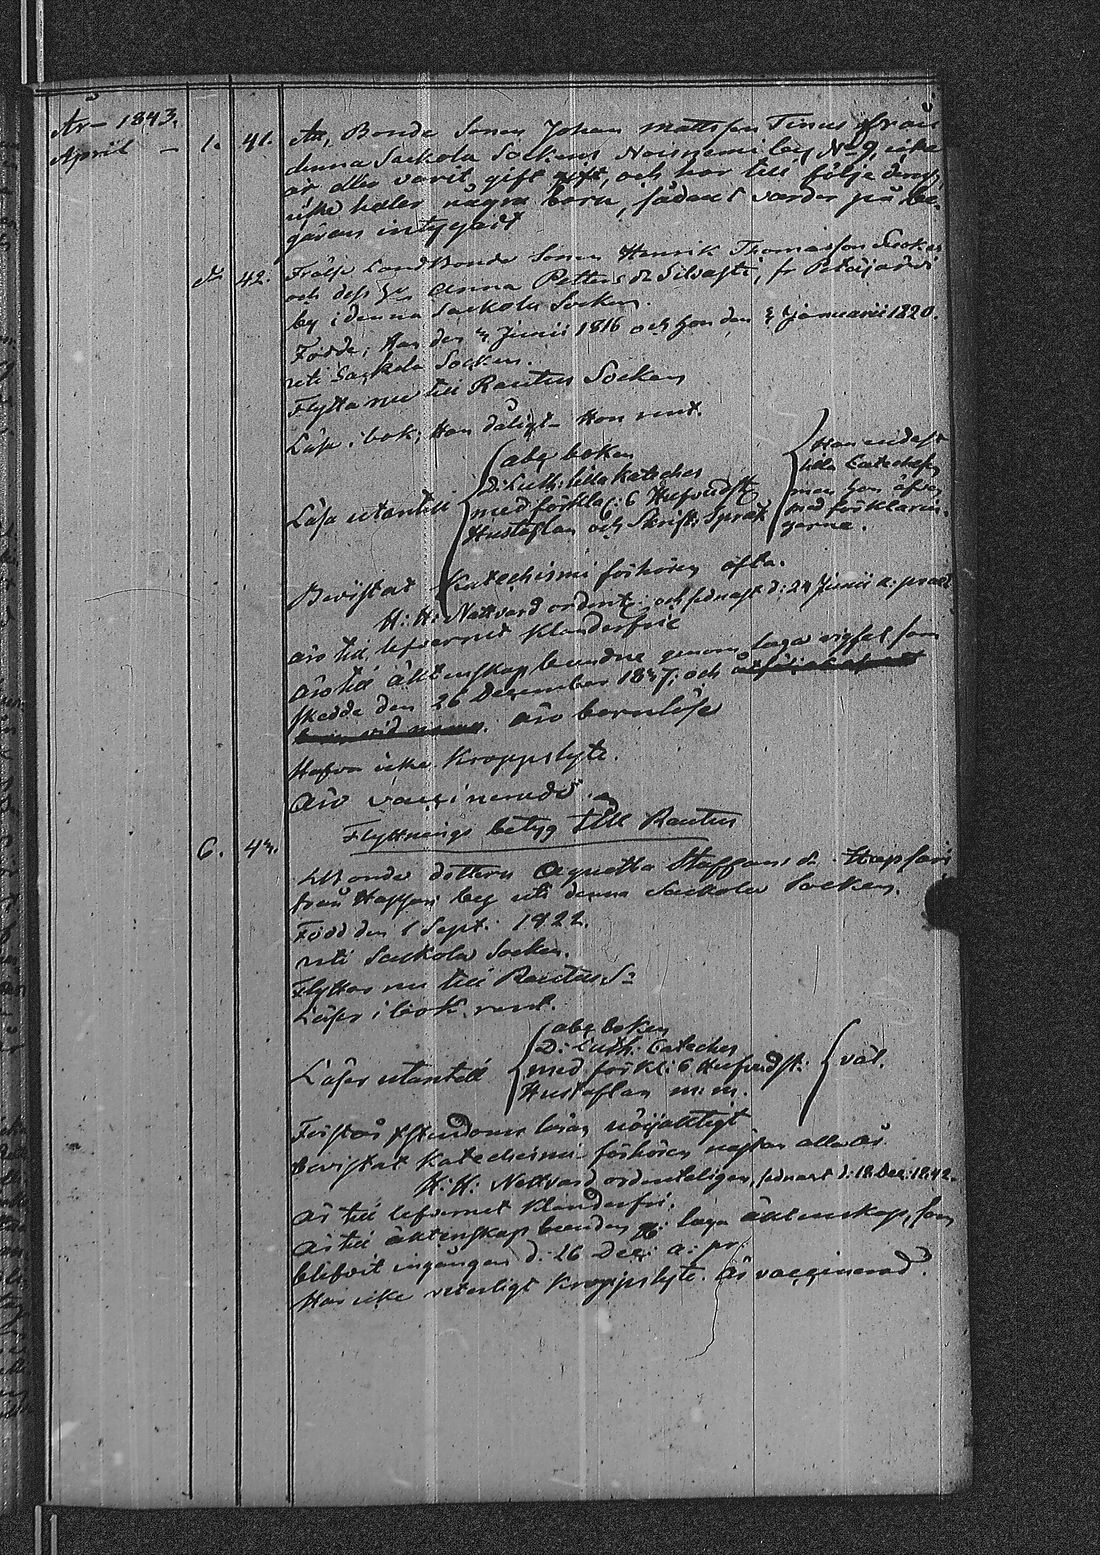 År 1843.
April – 1. 41. Att, Bonde Sonen Johan Mattsson Tinus från
denna Sackola Sockens Noisniemi by No 9, icke
är eller varit gift, och har till följe deraf,
icke heller några barn, sådant varder på be-
gäran intygadt
d:o 42. Frälse Landbonde Sonen Henrik Thomasson
och dess Anna Petters Dr Silvasti, fr Petäjärvi
by i denna Sackola Socken.
Födde; Han den Junii 1816 och hon den Januarii 1820.
uti Sackola Socken.
Flytta nu till Rautus Socken
Läsa i bok; Han dåligt – Hon rent.
abq boken
D: Luth: lilla Kateches
Läsa utantill med förkla: 6 Hufvudst
Hustaflan och Skrift: Språk
Han endast
lilla Catechesen
men hon äfven
med förklarin-
garne.
Bevistat Katechismi förhören ofta.
H: H: Nattvard ordentl: och sednast d: 24 Junii a: praet
äro till lefvernet Klanderfrie
äro till äktenskap bundne genom laga vigsel, som
skedde den 26 December 1837; och
äro barnlöse
Hafva icke Kroppslyte.
Äro vaccinerade.
Flyttnings betyg till Rautus
6. 43. Bonde dottern Agnetha Staffans dr Hapsari
från Happari by uti denna Sackola Socken.
Född den 1 Sept. 1822.
uti Sackola Socken.
Flyttar nu till Rautus S:
Läser i bok. rent.
abq boken
D: Luth: Cateches
Läser utantill med förkl: 6 Hufvudst: väl.
Hustaflan m: m.
Förstår Kristendoms läran nöijaktigt
Bevistat Katechismi förhören nästan alla år
H: H: Nattvard ordenteligen, sednast d: 18 Dec: 1842.
Är till lefvernet Klanderfri.
Är till äktenskap bunden g: laga äktenskap, som
blefvit ingången d: 26 Dec: a: pr:
Har icke veterligt Kroppslyte. Är vaccinerad.